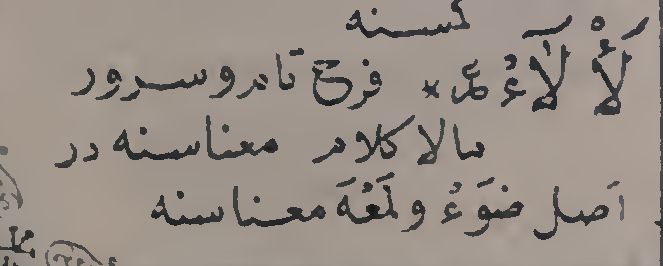 كسنه
لَأْلَآءُ * فرح تام و سرور
مالا كلام معناسنه در
اصل ضَوءُ و لَمْعَهَ معناسنه